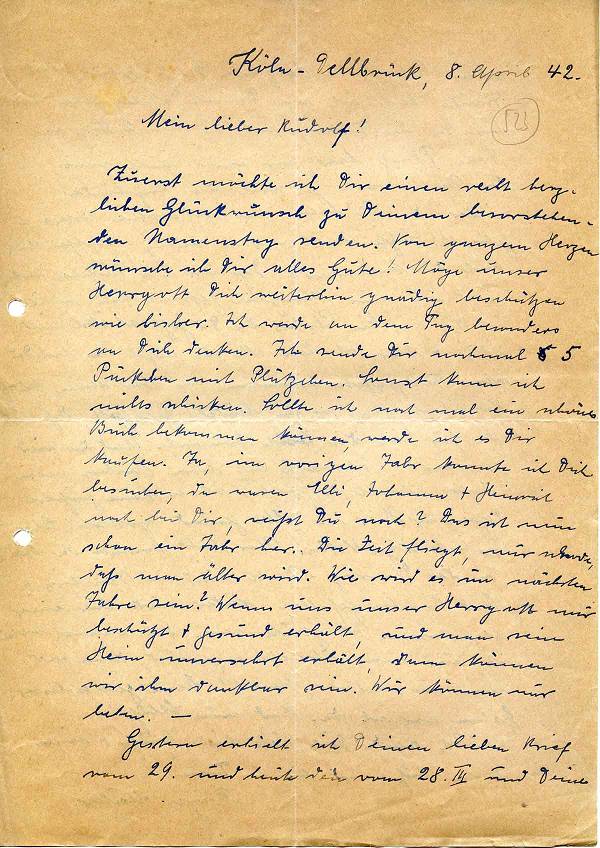 Köln-Dellbrück, 8. April 42.
523
Mein lieber Rudolf!
Zuerst möchte ich Dir einen recht herz-
lichen Glückwunsch zu Deinem bevorstehen-
den Namenstag senden. Von ganzem Herzen
wünsche ich Dir alles Gute! Möge unser
Herrgott Dich weiterhin gnädig beschützen
wie bisher. Ich werde an dem Tag besonders
an Dich denken. Ich sende Dir nochmal 5
Päckchen mit Plätzchen. Sonst kann ich
nichts schicken. Sollte ich noch mal ein schönes
Buch bekommen können, werde ich es Dir
kaufen. Ja, im vorigen Jahr konnte ich Dich
besuchen, da waren Elli, Johanna + Heinrich
noch bei Dir, weißt Du noch? Das ist nun
schon ein Jahr her. Die Zeit fliegt, nur schade,
daß man älter wird. Wie wird es im nächsten
Jahre sein? Wenn uns unser Herrgott nur
beschützt + gesund erhält, und man sein
Heim unversehrt erhält, dann können
wir schon dankbar sein. Wir können nur
beten. —
Gestern erhielt ich Deinen lieben Brief
vom 29. und heute den vom 28. III und Deine